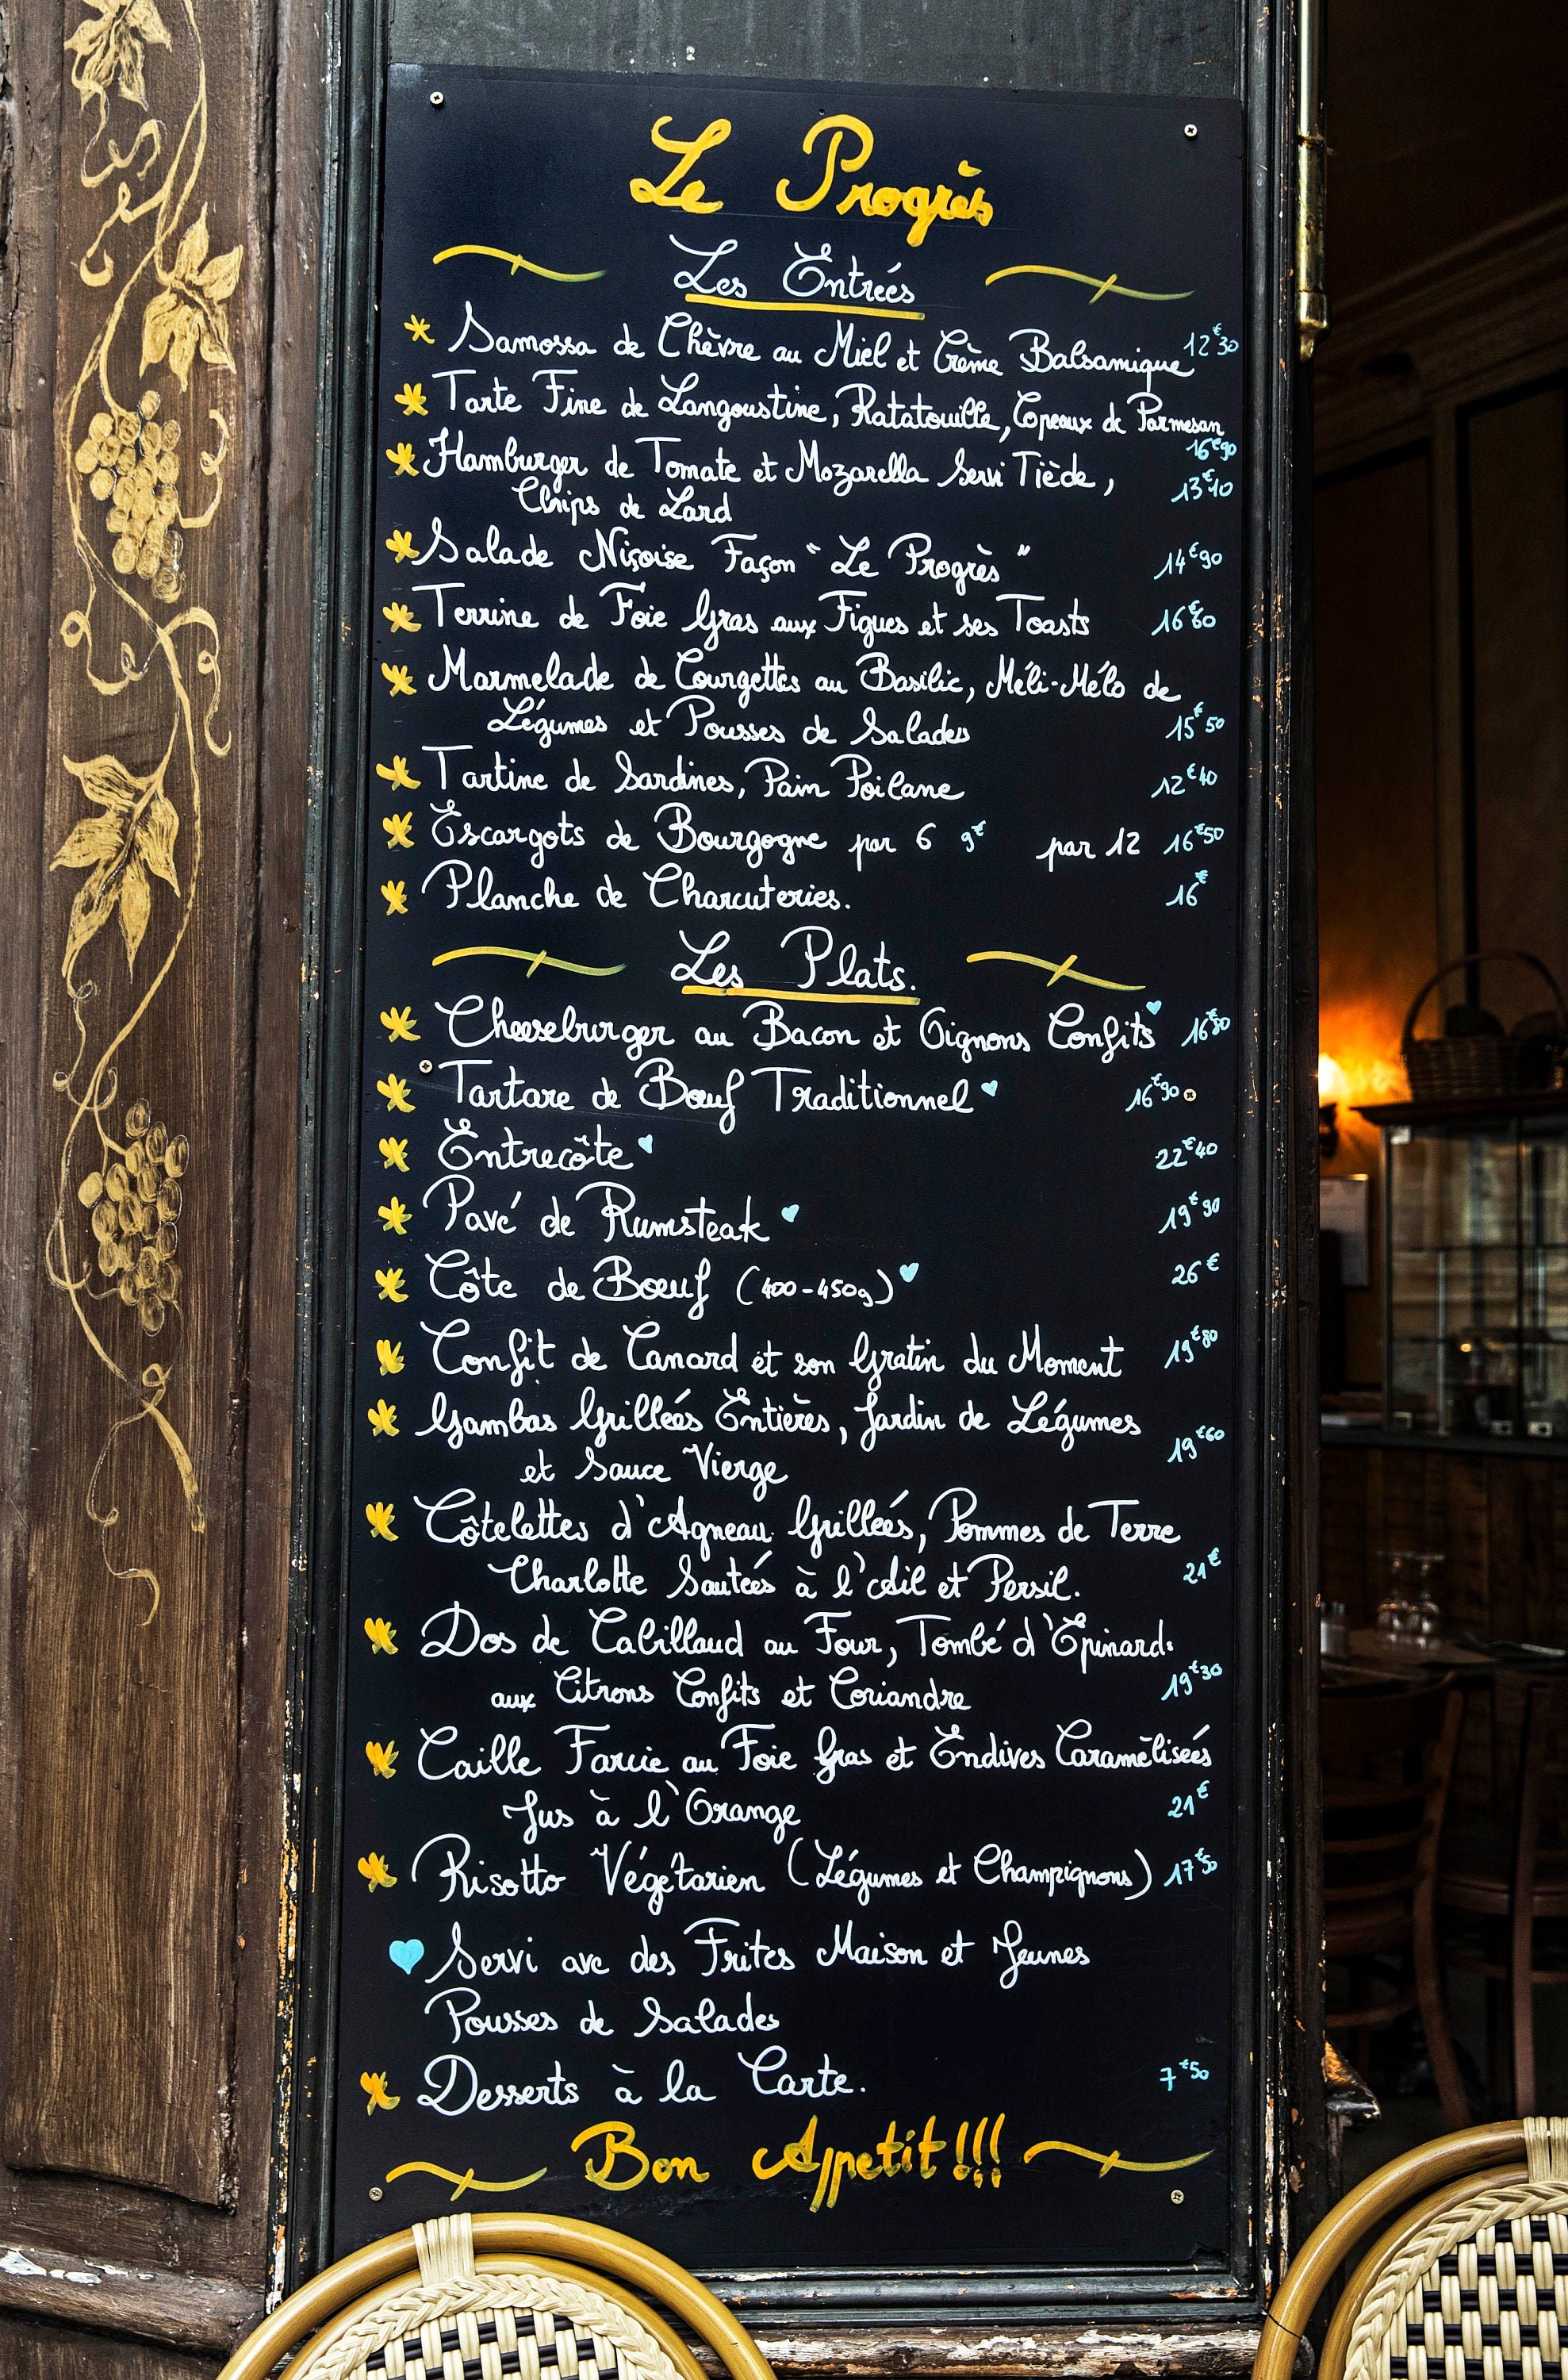 Le Progrès
Les Entrées
Samossa de Chèvre au Miel et Crème Balsamique 12€30
Tarte Fine de Langoustine, Ratatouille, Copeaux de Parmesan
16€90
Hamburger de Tomate et Mozarella Servi Tiède,
13€10
Chips de Lard
Salade Niçoise Façon "Le Progrès" 14€90
Terrine de Foie Gras aux Figues et ses Toasts
Marmelade de Courgettes au Basilic, Méli-Mélo de
Légumes et Pousses de Salades 15€50
Tartine de Sardines, Pain Poilane 12€40
Escargots de Bourgogne par 6 9€ par 12 16€50
Planche de Charcuteries. 16€
Les Plats.
Cheeseburger au Bacon et Oignons Confits
Tartare de Bœuf Traditionnel 16€90
Entrecôte 22€40
Pavé de Rumsteak 19€90
Côte de Bœuf (400-450g) 26€
Confit de Canard et son Gratin du Moment 19€80
Gambas Grillées Entières, Jardin de Légumes
19€60
et Sauce Vierge
Côtelettes d'Agneau Grillées, Pommes de Terre
Charlotte Sautées à l'Ail et Persil. 21€
Dos de Cabillaud au Four, Tombé d'Epinards
aux Citrons Confits et Coriandre 19€30
Caille Farcie au Foie Gras et Endives Caramélisées
Jus à l'Orange 21€
Risotto Végétarien (Légumes et Champignons) 17€50
Servi avc des Frites Maison et Jeunes
Pousses de Salades
Desserts à la Carte. 7€50
Bon Appetit!!!